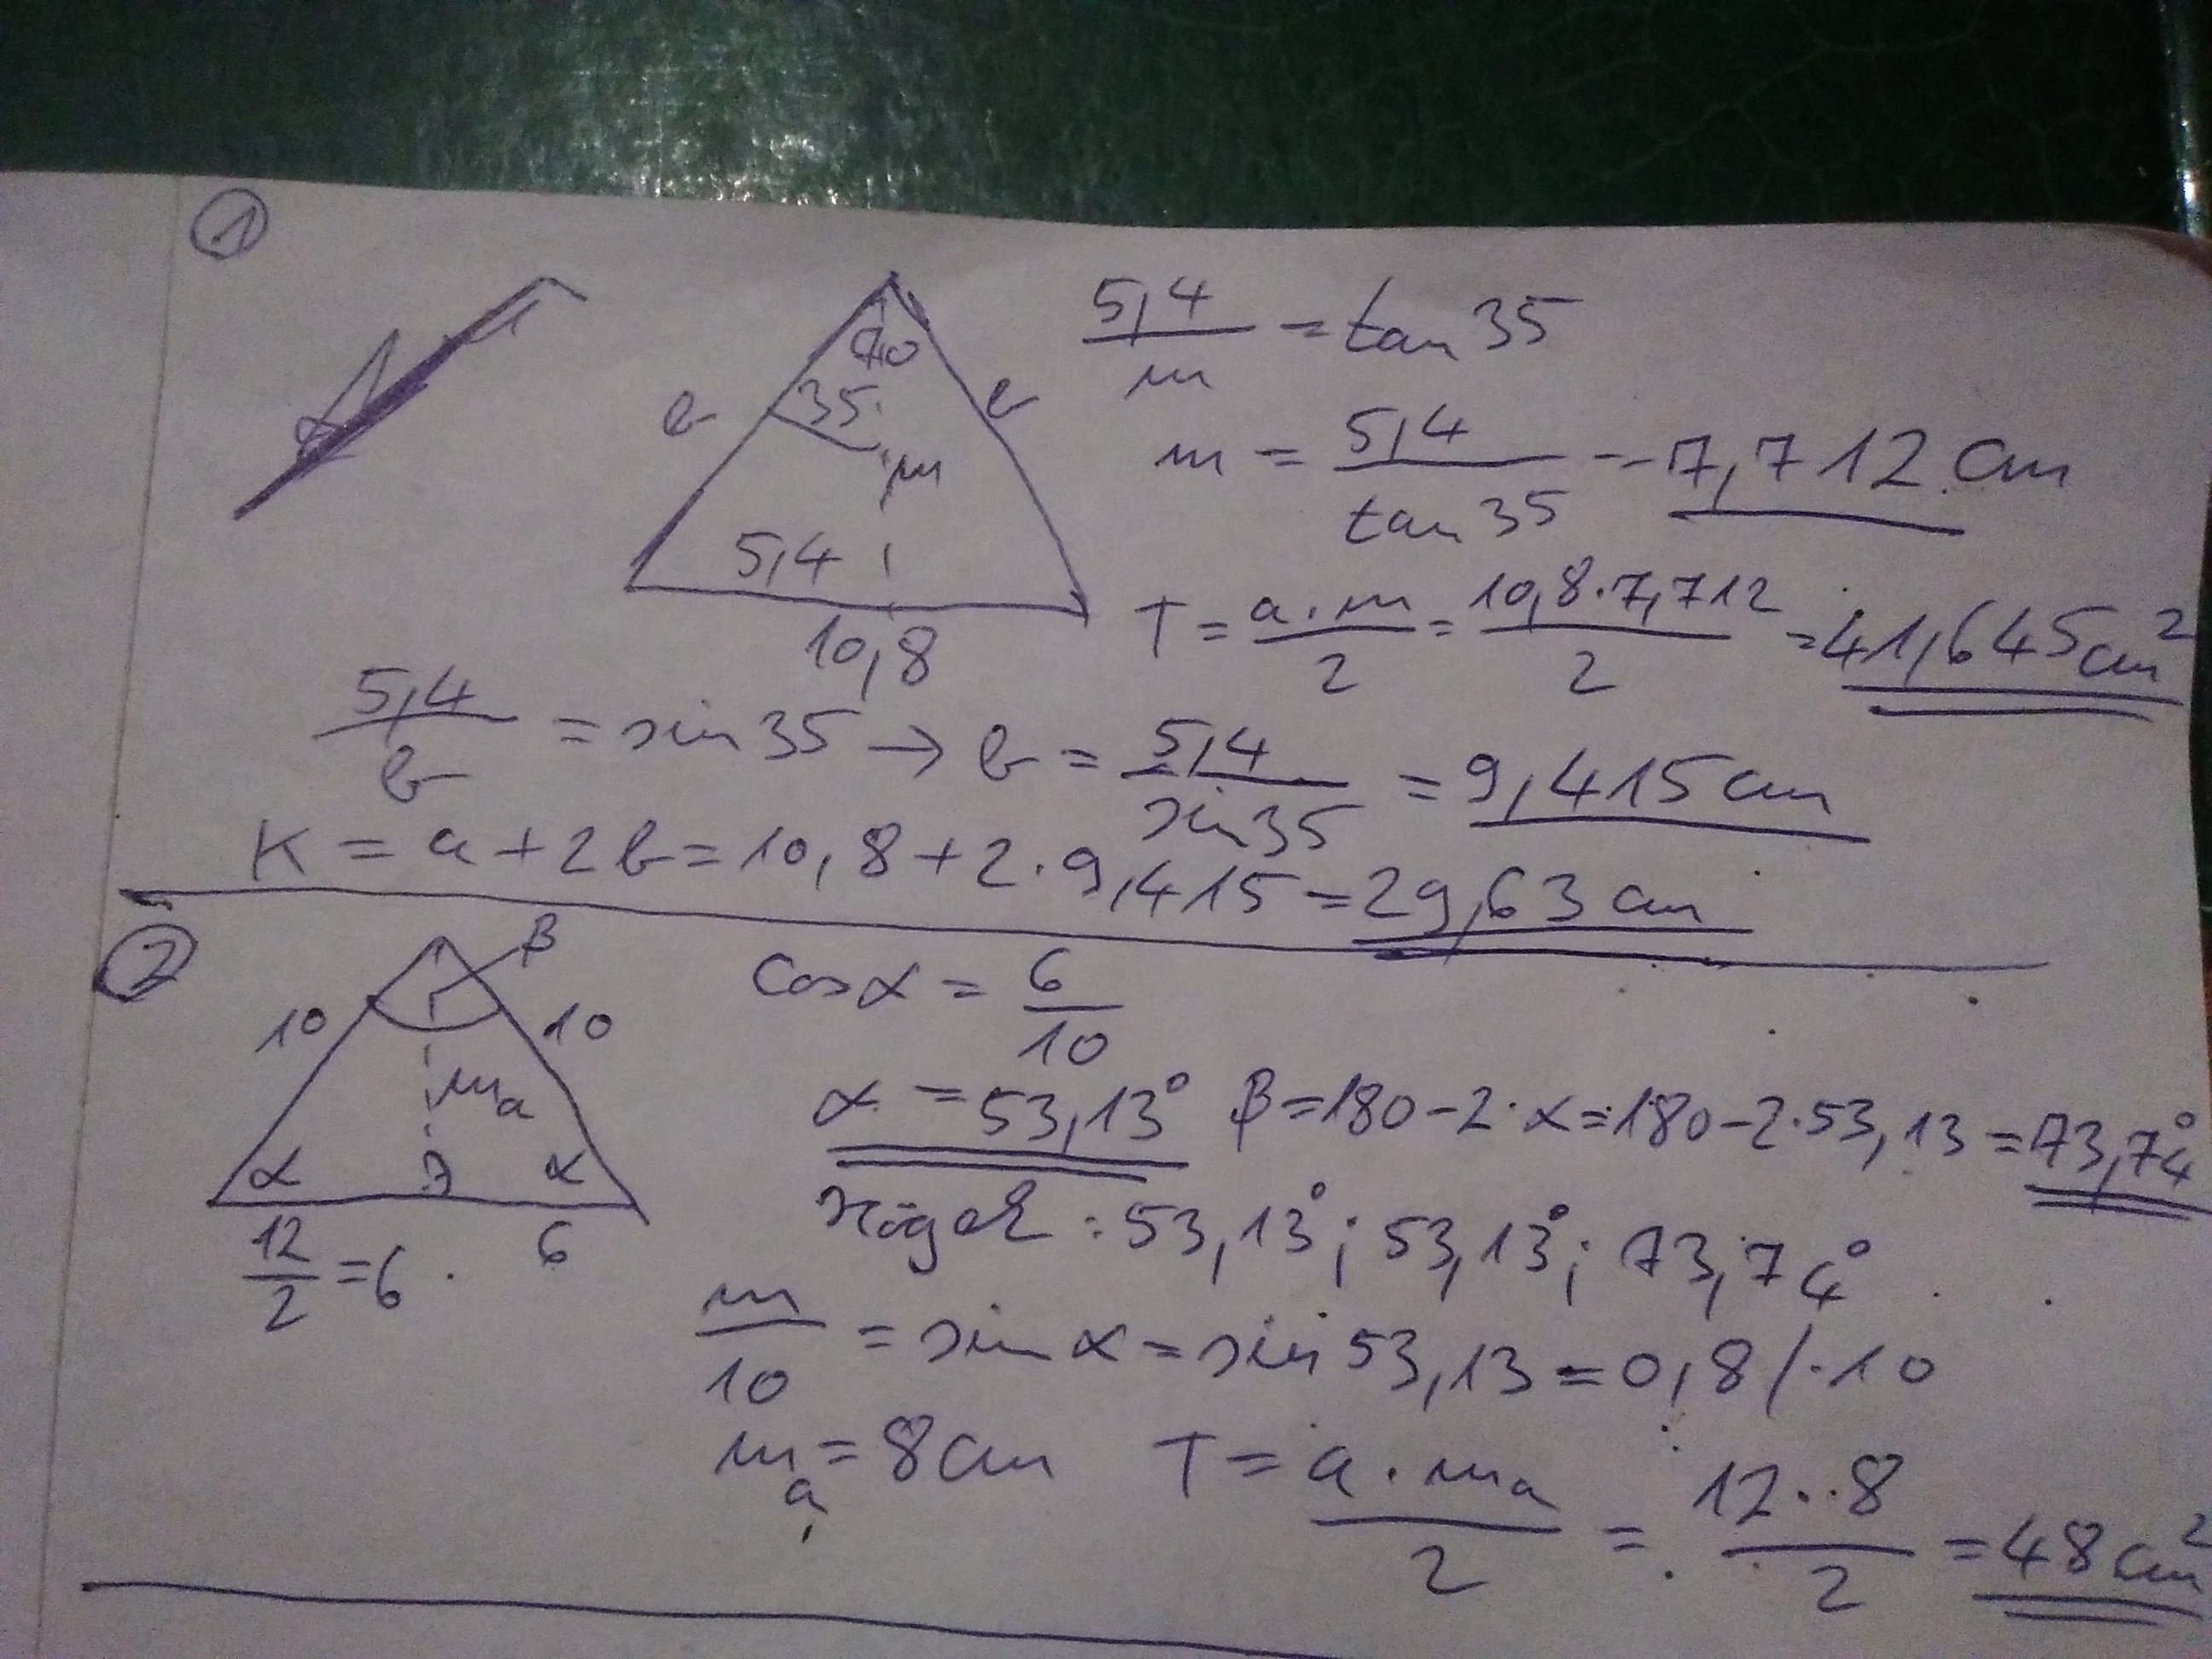 1
70
35
b b
m
5,4
10,8
5,4/m = tan 35
m = 5,4/tan 35 = 7,712 cm
T = a·m/2 = 10,8·7,712/2 = 41,645 cm²
5,4/b = sin 35 → b = 5,4/sin 35 = 9,415 cm
K = a + 2b = 10,8 + 2·9,415 = 29,63 cm
2
β
10 10
mₐ
α α
12/2 = 6 6
cos α = 6/10
α = 53,13° β = 180 - 2·α = 180 - 2·53,13 = 73,74°
szögek : 53,13° ; 53,13° ; 73,74°
m/10 = sin α = sin 53,13 = 0,8 /·10
mₐ = 8 cm T = a·mₐ/2 = 12·8/2 = 48 cm²